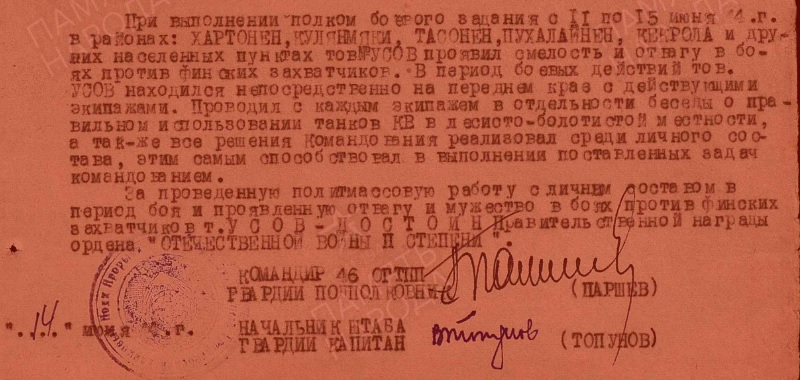 При выполнении полком боевого задания с II по I5 июня 4.г.
в районах: ХАРТОНЕН,КУЛЯНМЯКИ, ТАСОНЕН,ПУХАЛАЙНЕН, КЕКРОЛА и дру-
гих населенных пунктах тов УСОВ проявил смелость и отвагу в бо-
ях против финских захватчиков. В период боевых действий тов.
УСОВ находился непосредственно на переднем крае с действующими
экипажами. Проводил с каждым экипажем в отдельности беседы о пра-
вильном использовании танков КВ в лесисто-болотистой местности,
а так-же все решения Командования реализовал среди личного сос-
тава, этим самым способствовал в выполнении поставленных задач
командованием.
За проведенную политмассовую работу с личным составом в
период боя и проявленную отвагу и мужество в боях против финских
захватчиков т.У С О В - Д О С Т О И Н Правительственной награды
ордена "ОТЕЧЕСТВЕННОЙ ВОЙНЫ П СТЕПЕНИ".
КОМАНДИР 46 ОГТТП
ГВАРДИИ ПОДПОЛКОВНИК (ПАРШЕВ)
".14." июня г.
НАЧАЛЬНИК ШТАБА
ГВАРДИИ КАПИТАН (ТОПУНОВ)